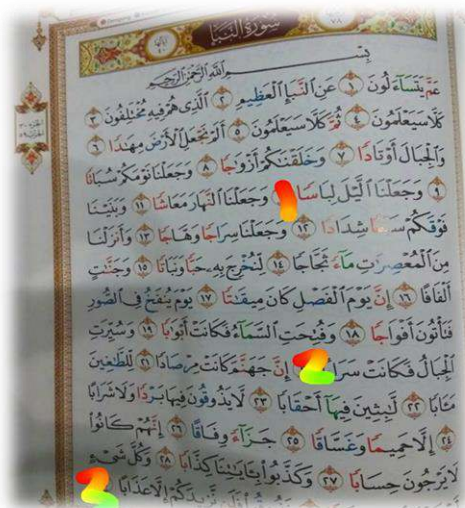 سورة النبإ
بسم الله الرحمن الرحيم
عَمَّ يَتَسَاءَلُونَ ١ عَنِ النَّبَإِ الْعَظِيمِ ٢ الَّذِي هُمْ فِيهِ مُخْتَلِفُونَ ٣
كَلَّا سَيَعْلَمُونَ ٤ ثُمَّ كَلَّا سَيَعْلَمُونَ ٥ أَلَمْ نَجْعَلِ الْأَرْضَ مِهَٰدًا ٦
وَالْجِبَالَ أَوْتَادًا ٧ وَخَلَقْنَٰكُمْ أَزْوَٰجًا ٨ وَجَعَلْنَا نَوْمَكُمْ سُبَاتًا
٩ وَجَعَلْنَا الَّيْلَ لِبَاسًا 1 وَجَعَلْنَا النَّهَارَ مَعَاشًا ١١ وَبَنَيْنَا
فَوْقَكُمْ سَبْعًا شِدَادًا ١٢ وَجَعَلْنَا سِرَاجًا وَهَّاجًا ١٣ وَأَنزَلْنَا
مِنَ الْمُعْصِرَٰتِ مَاءً ثَجَّاجًا ١٤ لِّنُخْرِجَ بِهِ حَبًّا وَنَبَاتًا ١٥ وَجَنَّٰتٍ
أَلْفَافًا ١٦ إِنَّ يَوْمَ الْفَصْلِ كَانَ مِيقَٰتًا ١٧ يَوْمَ يُنفَخُ فِي الصُّورِ
فَتَأْتُونَ أَفْوَاجًا ١٨ وَفُتِحَتِ السَّمَاءُ فَكَانَتْ أَبْوَٰبًا ١٩ وَسُيِّرَتِ
الْجِبَالُ فَكَانَتْ سَرَا 2 إِنَّ جَهَنَّمَ كَانَتْ مِرْصَادًا ٢١ لِّلطَّٰغِينَ
مَـَٔابًا ٢٢ لَّٰبِثِينَ فِيهَا أَحْقَابًا ٢٣ لَّا يَذُوقُونَ فِيهَا بَرْدًا وَلَا شَرَابًا
٢٤ إِلَّا حَمِيمًا وَغَسَّاقًا ٢٥ جَزَاءً وِفَاقًا ٢٦ إِنَّهُمْ كَانُوا
لَا يَرْجُونَ حِسَابًا ٢٧ وَكَذَّبُوا بِـَٔايَٰتِنَا كِذَّابًا ٢٨ وَكُلَّ شَيْءٍ
نَّزِيدَكُمْ إِلَّا عَذَابًا 2